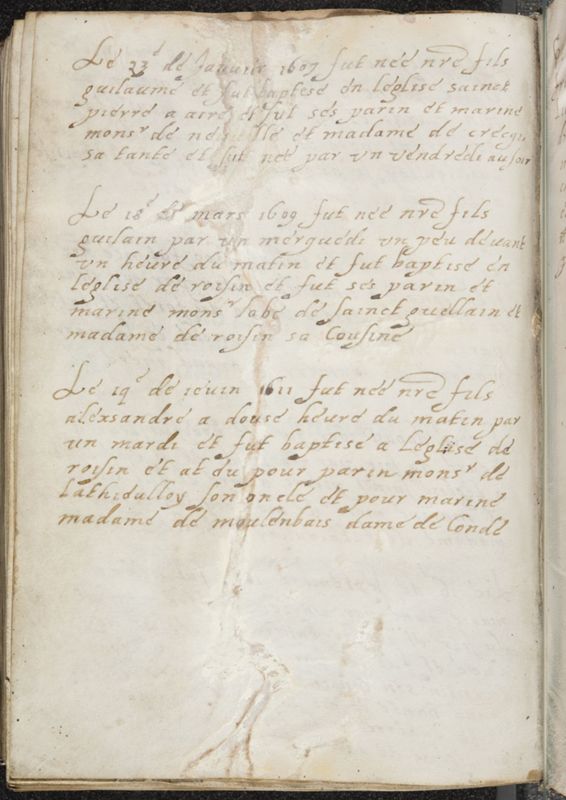 Le 23e de Januier 1607 fut néé nre fils
guilaumé et fut baptese én léglise sainct
piérré a airé et fut sés parin et mariné
monsr dé et madamé dé crécqui
sa tanté et fut néé par vn véndrédi au soir
Le 18e de mars 1609 fut néé nre fils
guilain par vn mérquédi vn péu déuant
vn héuré du matin et fut baptisé én
léglisé dé roisin et fut sés parin et
mariné monsr labé dé sainct guellain et
madamé dé roisin sa Cousiné
Le 19e dé iéuin 1611 fut néé nre fils
aléxsandré a dousé héuré du matin par
vn mardi et fut baptisé a Léglisé dé
roisin ét at éu pour parin monsr dé
Lathiéulloy son onclé ét pour mariné
madamé dé moulénbais damé dé Condé